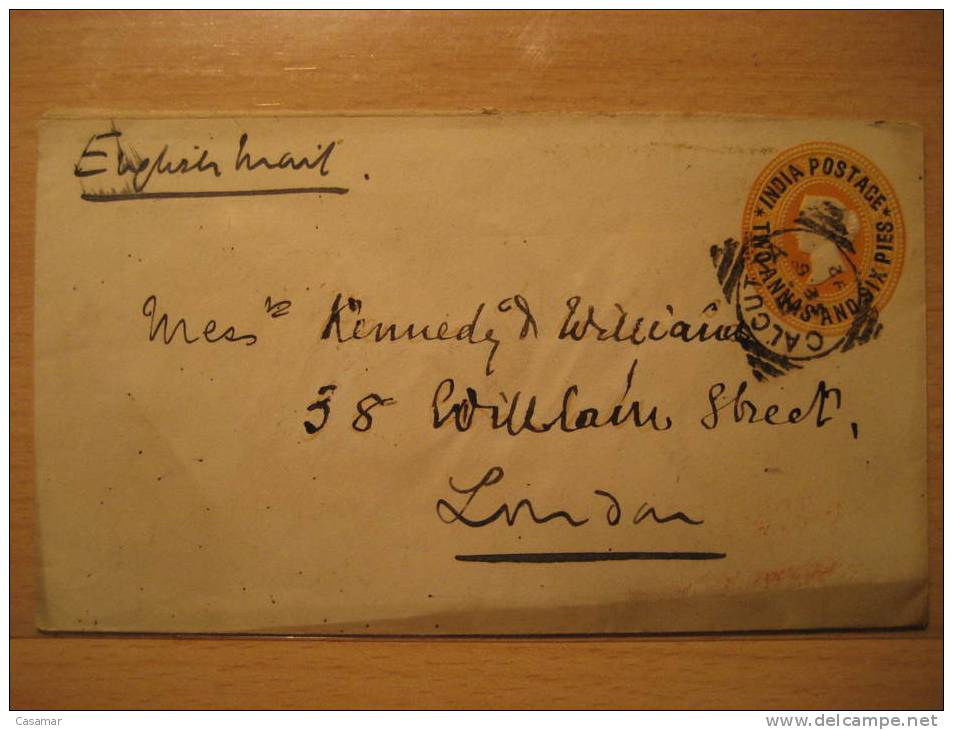 English Mail.
* INDIA POSTAGE *
TWO ANNAS AND SIX PIES
CALCUT
Messrs Kennedy & Williams
38 William Street,
London
Casamar
www.delcampe.net